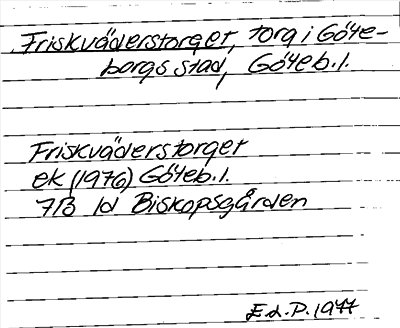 Friskväderstorget, torg i Göte-
borgs stad, Göteb.l.
Friskväderstorget
ek (1976) Göteb.l.
7B 1d Biskopsgården
E.d.P. 1977